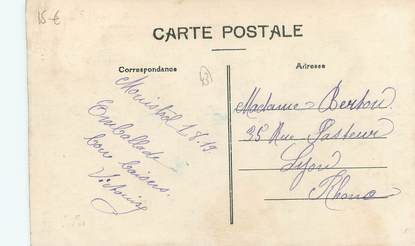 15 €
CARTE POSTALE
Correspondance
Adresse
43
Monistrol 1.8.19
Emballade
bons baisers
Victorine
Madame Berbon
35 Rue Pasteur
Lyon
Rhone